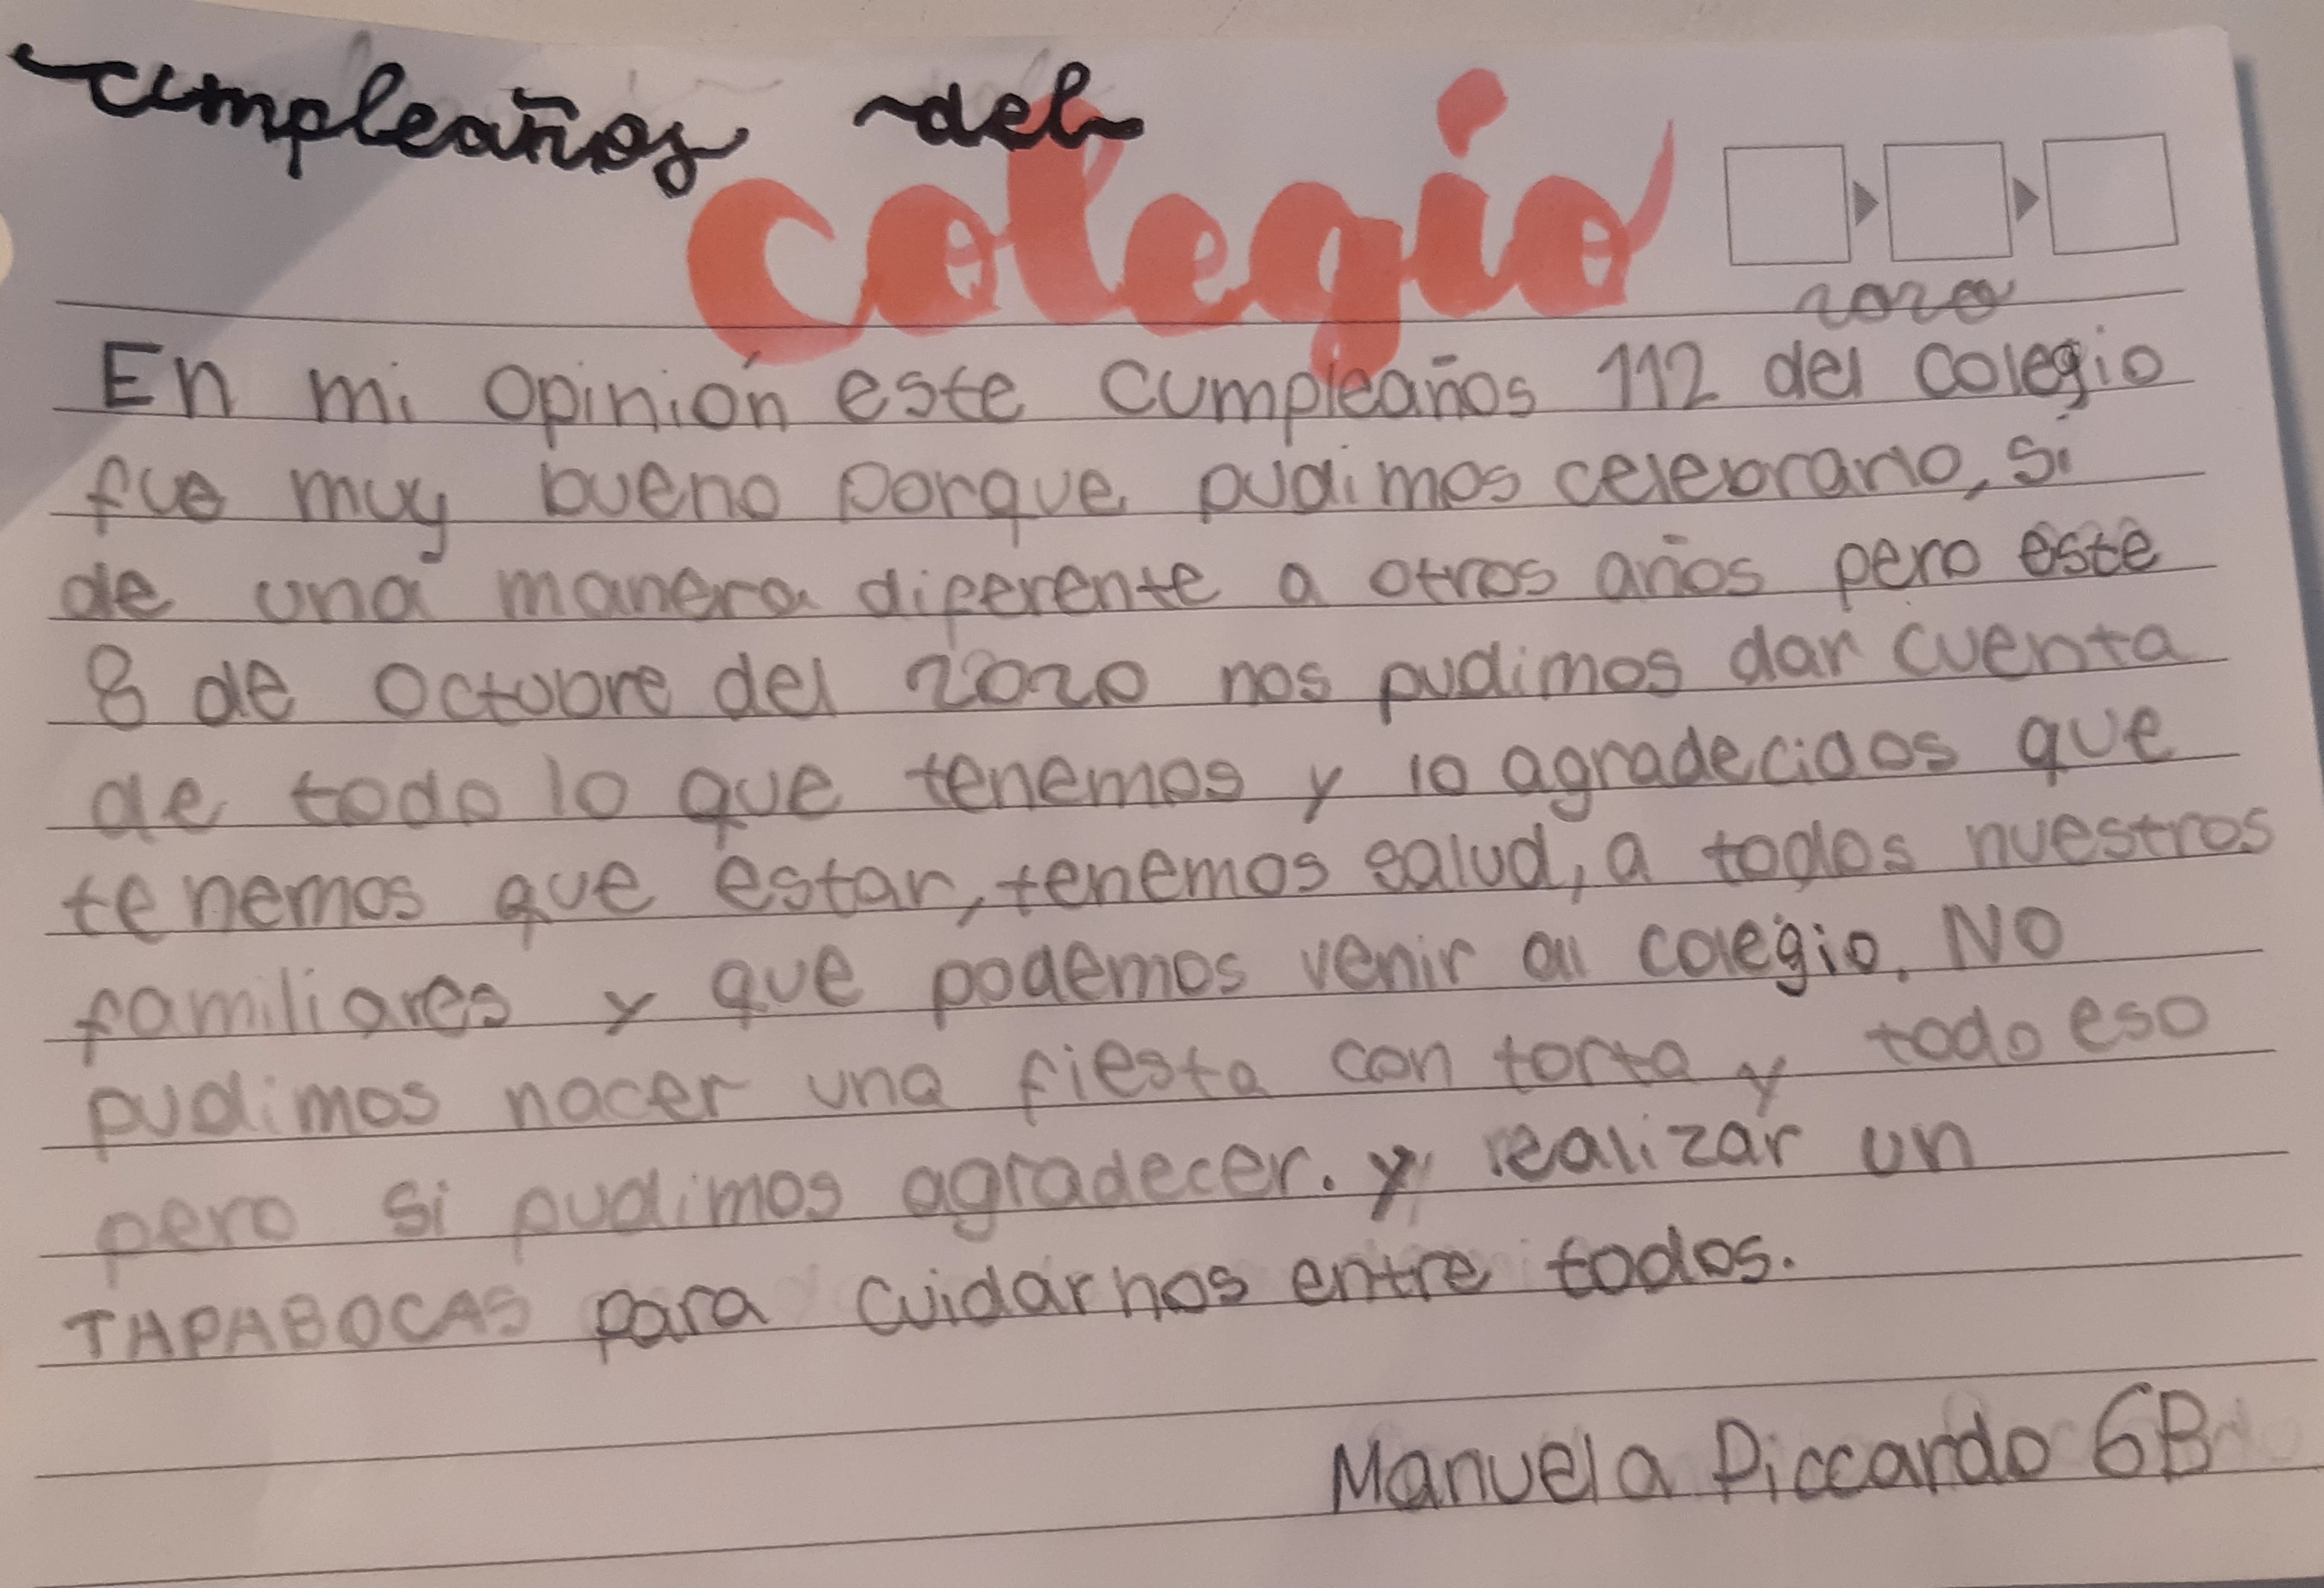 cumpleaños del
colegio
2020
En mi opinión este cumpleaños 112 del colegio
fue muy bueno porque pudimos celebrarlo, si
de una manera diferente a otros años pero este
8 de octubre del 2020 nos pudimos dar cuenta
de todo lo que tenemos y lo agradecidos que
tenemos que estar, tenemos salud, a todos nuestros
familiares y que podemos venir al colegio. NO
pudimos hacer una fiesta con torta y todo eso
pero si pudimos agradecer. y realizar un
TAPABOCAS para cuidarnos entre todos.
Manuela Piccardo 6B